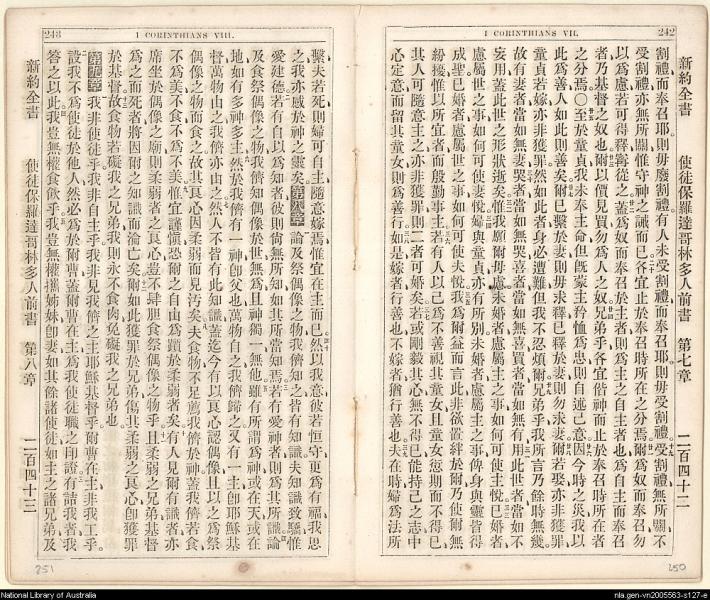 242
I CORINTHIANS VII.
新約全書 使徒保羅達哥林多人前書 第七章 二百四十二
割禮而奉召耶則毋廢割禮有人未受割禮而奉召耶則毋受割禮受割禮無所關不
受割禮亦無所關惟守神之誡而已各宜止於奉召時所在之分焉爾爲奴而奉召勿
以爲慮若可得釋寧從之蓋爲奴而奉召於主者則爲主之自主者也爲自主而奉召
者乃基督之奴也爾以價見買勿爲人之奴兄弟乎各宜偕神而止於奉召時所在者
之分焉〇至於童貞我未奉主命但既蒙主矜恤爲忠則自述己意因今時之災我以
此爲善人如此則善矣爾已繫於妻則毋求釋已釋於妻則勿求妻爾若娶亦非獲罪
童貞若嫁亦非獲罪然如此者身必遭難但我不忍煩爾兄弟乎我所言乃餘時無幾
故有妻者當如無妻哭者當如無哭喜者當如無喜買者當如無有用此世者當如不
妄用蓋此世之形狀逝矣惟我願爾毋慮未婚者慮屬主之事如何可使主悅已婚者
慮屬世之事如何可使妻悅婦與童貞亦有所別未婚者慮屬主之事俾身與靈皆得
成聖已婚者慮屬世之事如何可使夫悅我爲爾益而言此非欲置絆於爾乃使爾無
紛擾惟以所宜者而殷勤事主若有人以己爲不善視其童女且童女愆期而不得已
其人可隨意主之亦非獲罪則二者可婚矣若或剛毅其心無不得已能持己之志中
心定意而留其童女則爲善行如是嫁者行善也不嫁者猶行善也夫在時婦爲法所
250
243
I CORINTHIANS VIII.
繫夫若死則婦可自主隨意嫁焉惟宜在主而已然以我意彼若恒守更爲有福我思
之我亦感於神之靈矣第八章論及祭偶像之物我儕知之皆有知識夫知識致驕惟
愛建德若有自以爲知者彼則尙無所知如其所當知焉若有愛神者則爲其所識論
及食祭偶像之物我儕知偶像於世無爲且神獨一無他雖有所謂爲神或在天或在
地如有多神多主然於我儕有一神卽父也萬物自之我儕歸之又有一主卽耶穌基
督萬物由之我儕亦由之然人不皆有此知識蓋迄今有以良心認偶像且以之爲祭
偶像之物而食之故其良心因柔弱而見汚矣夫食物不足薦我儕於神蓋我儕若食
不爲美不食不爲不美惟宜謹愼恐爾之自由爲躓於柔弱者矣有人見爾有識者亦
席坐於偶像之廟則柔弱者之良心豈不肆胆食祭偶像之物乎且柔弱之兄弟基督
爲之而死者將因爾之知識而淪亡矣爾如此獲罪於兄弟傷其柔弱之良心卽獲罪
於基督故食物若礙我之兄弟我則永不食肉免礙我之兄弟也
第九章我非使徒乎我非自主乎我非見我儕之主耶穌基督乎爾曹在主非我工乎
設我不爲使徒於他人然必爲於爾曹蓋爾曹在主爲我使徒職之印證有詰我者我
答之以此我豈無權食飲乎我豈無權攜姊妹卽妻如其餘諸使徒如主之諸兄弟及
新約全書 使徒保羅達哥林多人前書 第八章 二百四十三
251
National Library of Australia
nla.gen-vn2005563-s127-e